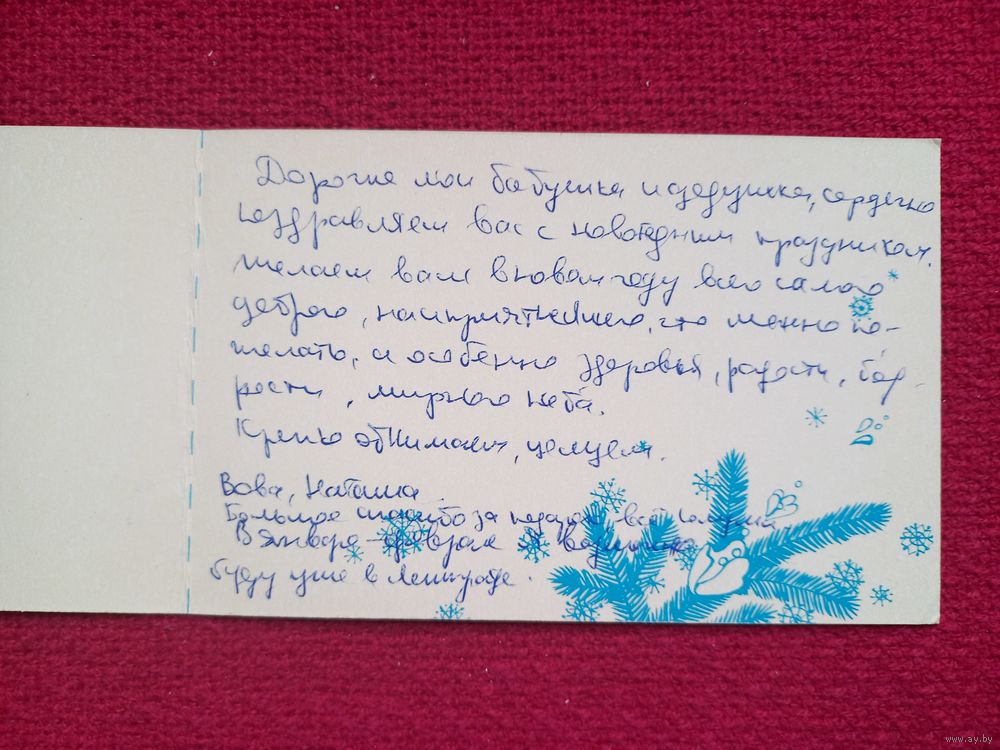 Дорогие мои бабушка и дедушка, сердечно
поздравляем вас с новогодним праздником.
Желаем вам в новом году всего самого
доброго, наиприятнейшего, что можно по-
желать, и особенно здоровья, радости, бод-
рости, мирного неба.
Крепко обнимаем, целуем.
Вова, Наташа.
Большое спасибо за
В январе-феврале я
буду уже в Ленинграде.
www.ay.by